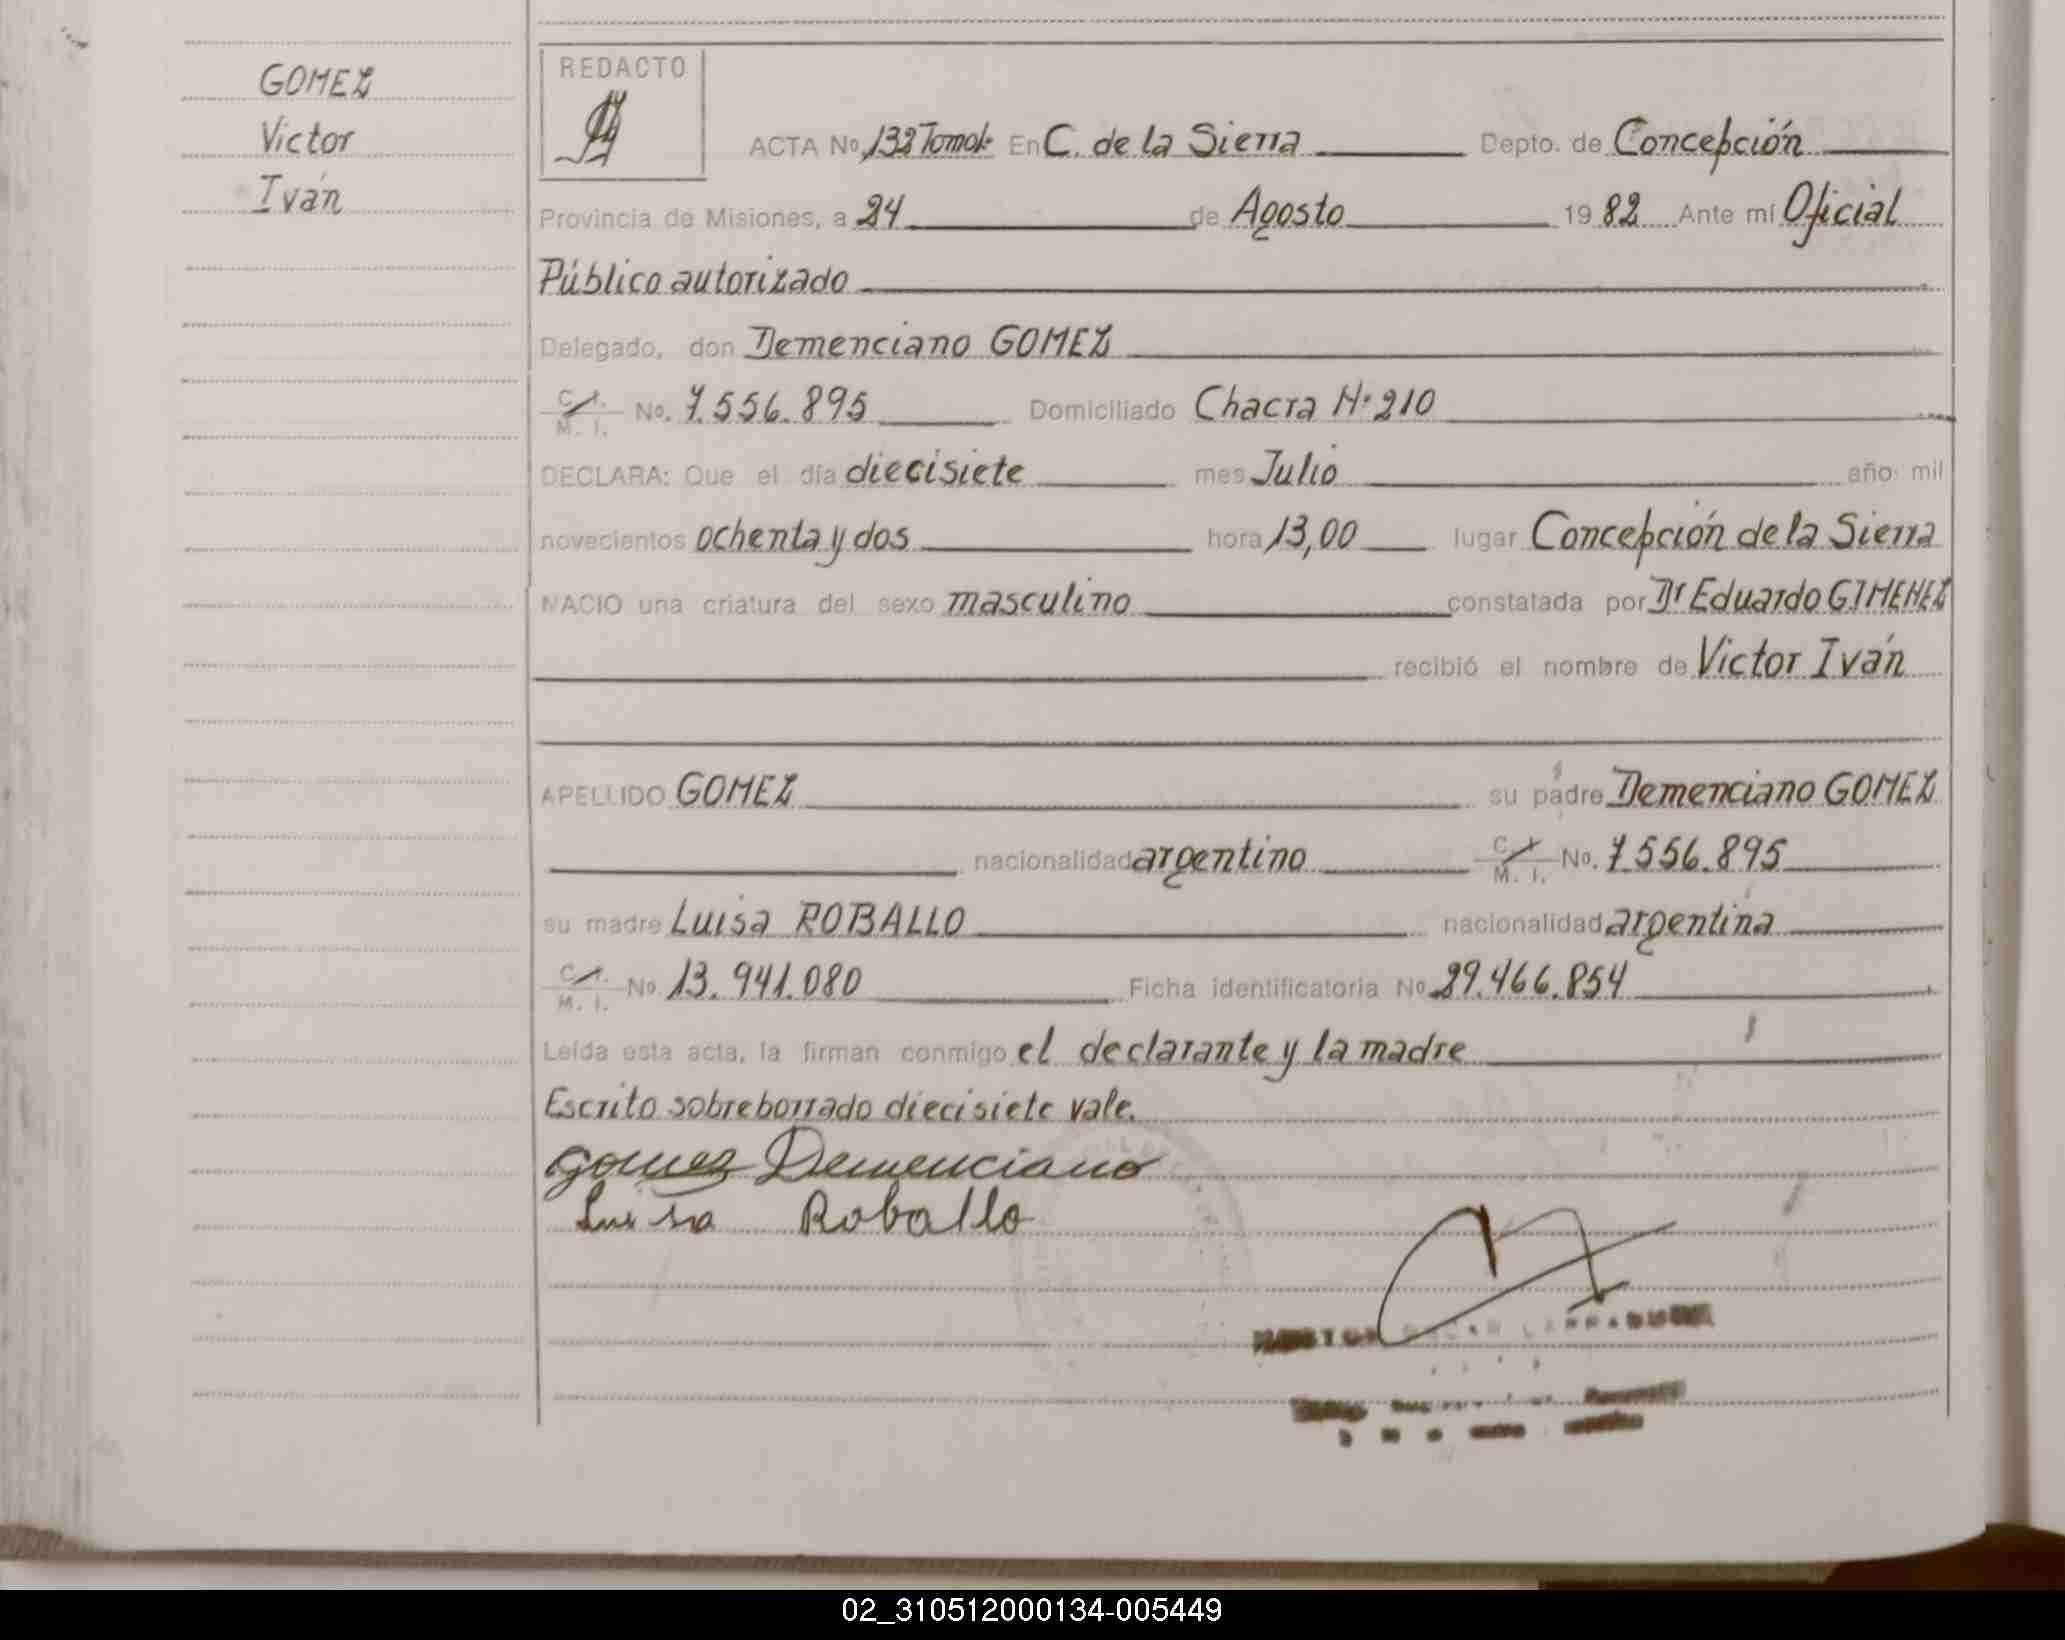 GOMEZ
Victor
Iván
REDACTO
ACTA No. 132 Tomo I· En C. de la Sierra Depto. de Concepción
Provincia de Misiones, a 24 de Agosto 1982 Ante mí Oficial
Público autorizado
Delegado, don Demenciano GOMEZ
C. I. M. I. No. 7.556.895 Domiciliado Chacra N· 210
DECLARA: Que el día diecisiete mes Julio año mil
novecientos ochenta y dos hora 13,00 lugar Concepción de la Sierra
NACIO una criatura del sexo masculino constatada por Dr Eduardo GIMENEZ
recibió el nombre de Victor Iván
APELLIDO GOMEZ su padre Demenciano GOMEZ
nacionalidad argentino C. I. M. I. No. 7.556.895
su madre Luisa ROBALLO nacionalidad argentina
C. I. M. I. No. 13.941.080 Ficha identificatoria No. 29.466.854
Leída esta acta, la firman conmigo el declarante y la madre
Escrito sobreborrado diecisiete vale.
Gomez Demenciano
Luisa Roballo
02_310512000134-005449